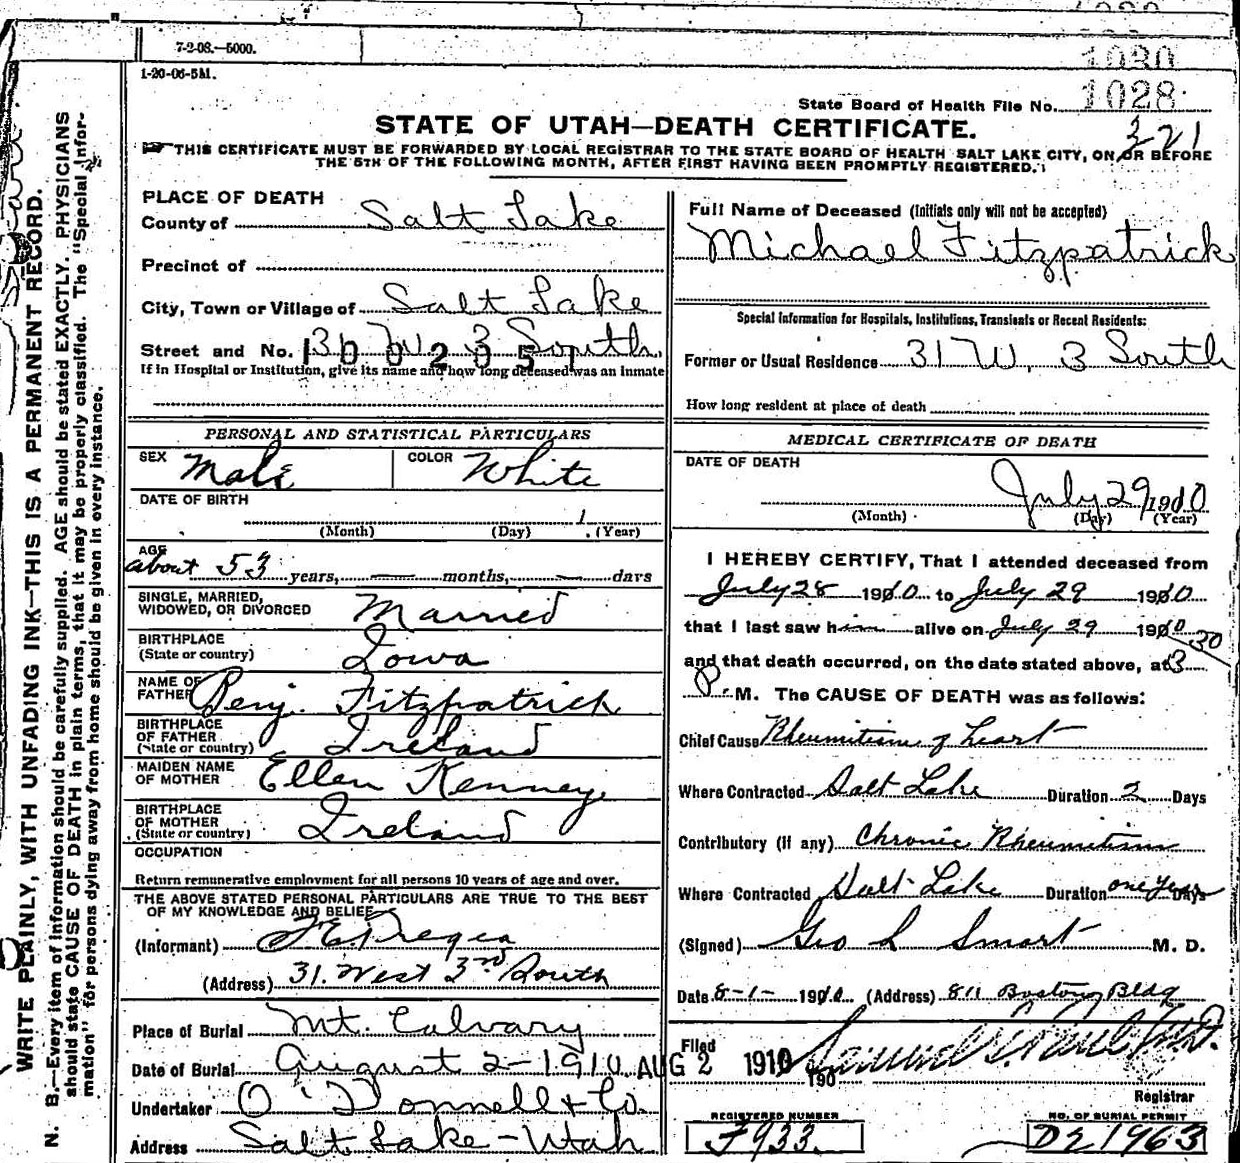 7-2-08.—5000.
1-20-06-5M.
1030
1028
State Board of Health File No.
321
STATE OF UTAH—DEATH CERTIFICATE.
THIS CERTIFICATE MUST BE FORWARDED BY LOCAL REGISTRAR TO THE STATE BOARD OF HEALTH SALT LAKE CITY, ON OR BEFORE
THE 5TH OF THE FOLLOWING MONTH, AFTER FIRST HAVING BEEN PROMPTLY REGISTERED.
WRITE PLAINLY, WITH UNFADING INK—THIS IS A PERMANENT RECORD.
N. B.—Every item of information should be carefully supplied. AGE should be stated EXACTLY. PHYSICIANS
should state CAUSE OF DEATH in plain terms, that it may be properly classified. The "Special Infor-
mation" for persons dying away from home should be given in every instance.
PLACE OF DEATH
County of Salt Lake
Precinct of
City, Town or Village of Salt Lake
Street and No. 31 W 3 South
1300205
If in Hospital or Institution, give its name and how long deceased was an inmate
PERSONAL AND STATISTICAL PARTICULARS
SEX Male COLOR White
DATE OF BIRTH
1
(Month) (Day) (Year)
AGE
about 53 years, — months, — days
SINGLE, MARRIED,
WIDOWED, OR DIVORCED Married
BIRTHPLACE
(State or country) Iowa
NAME OF
FATHER Benj. Fitzpatrick
BIRTHPLACE
OF FATHER
(State or country) Ireland
MAIDEN NAME
OF MOTHER Ellen Kenney
BIRTHPLACE
OF MOTHER
(State or country) Ireland
OCCUPATION
Return remunerative employment for all persons 10 years of age and over.
THE ABOVE STATED PERSONAL PARTICULARS ARE TRUE TO THE BEST
OF MY KNOWLEDGE AND BELIEF
(Informant)
(Address) 31 West 3rd South
Place of Burial Mt. Calvary
Date of Burial August 2-1910
Undertaker O'Donnell & Co.
Address Salt Lake-Utah
Full Name of Deceased (Initials only will not be accepted)
Michael Fitzpatrick
Special Information for Hospitals, Institutions, Transients or Recent Residents:
Former or Usual Residence 31 W. 3 South
How long resident at place of death
MEDICAL CERTIFICATE OF DEATH
DATE OF DEATH
July 29 1910
(Month) (Day) (Year)
I HEREBY CERTIFY, That I attended deceased from
July 28 1910 to July 29 1910
that I last saw him alive on July 29 1910
and that death occurred, on the date stated above, at 3 30
P. M. The CAUSE OF DEATH was as follows:
Chief Cause Rheumitism of heart
Where Contracted Salt Lake Duration 2 Days
Contributory (If any) Chronic Rheumitism
Where Contracted Salt Lake Duration one year Days
(Signed) Geo L Smart M. D.
Date 8-1- 1910 (Address) 811 Boston Bldg
Filed AUG 2 1910
190
Registrar
REGISTERED NUMBER
F933
NO. OF BURIAL PERMIT
D21963